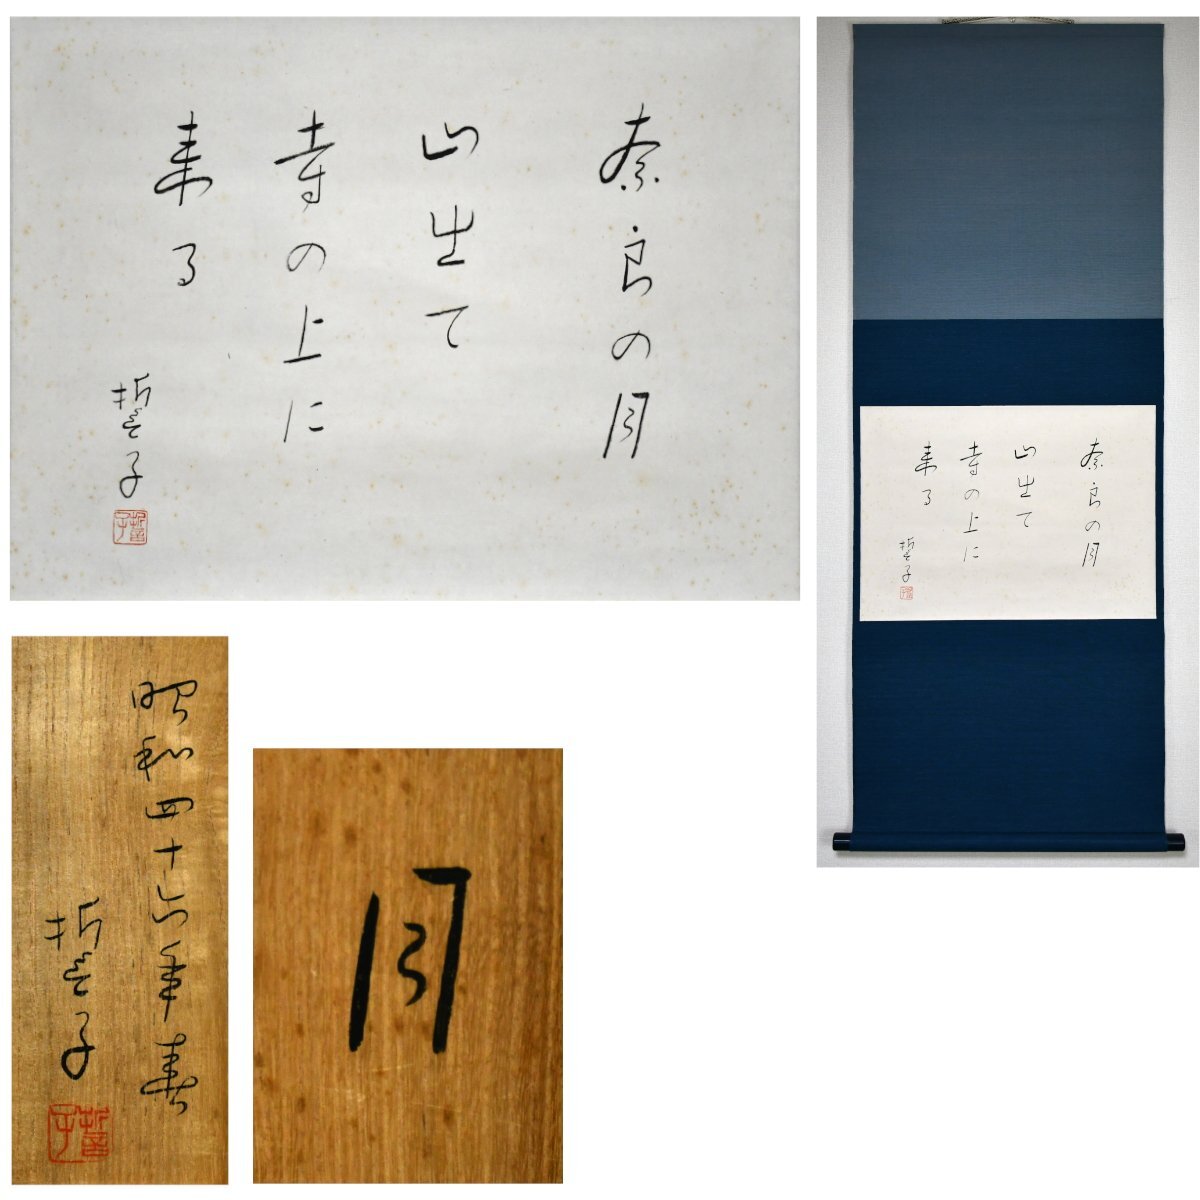 奈良の月
山出て
寺の上に
来る
誓子
誓子
奈良の月
山出て
寺の上に
来る
誓子
昭和四十六年春
誓子
誓子
月